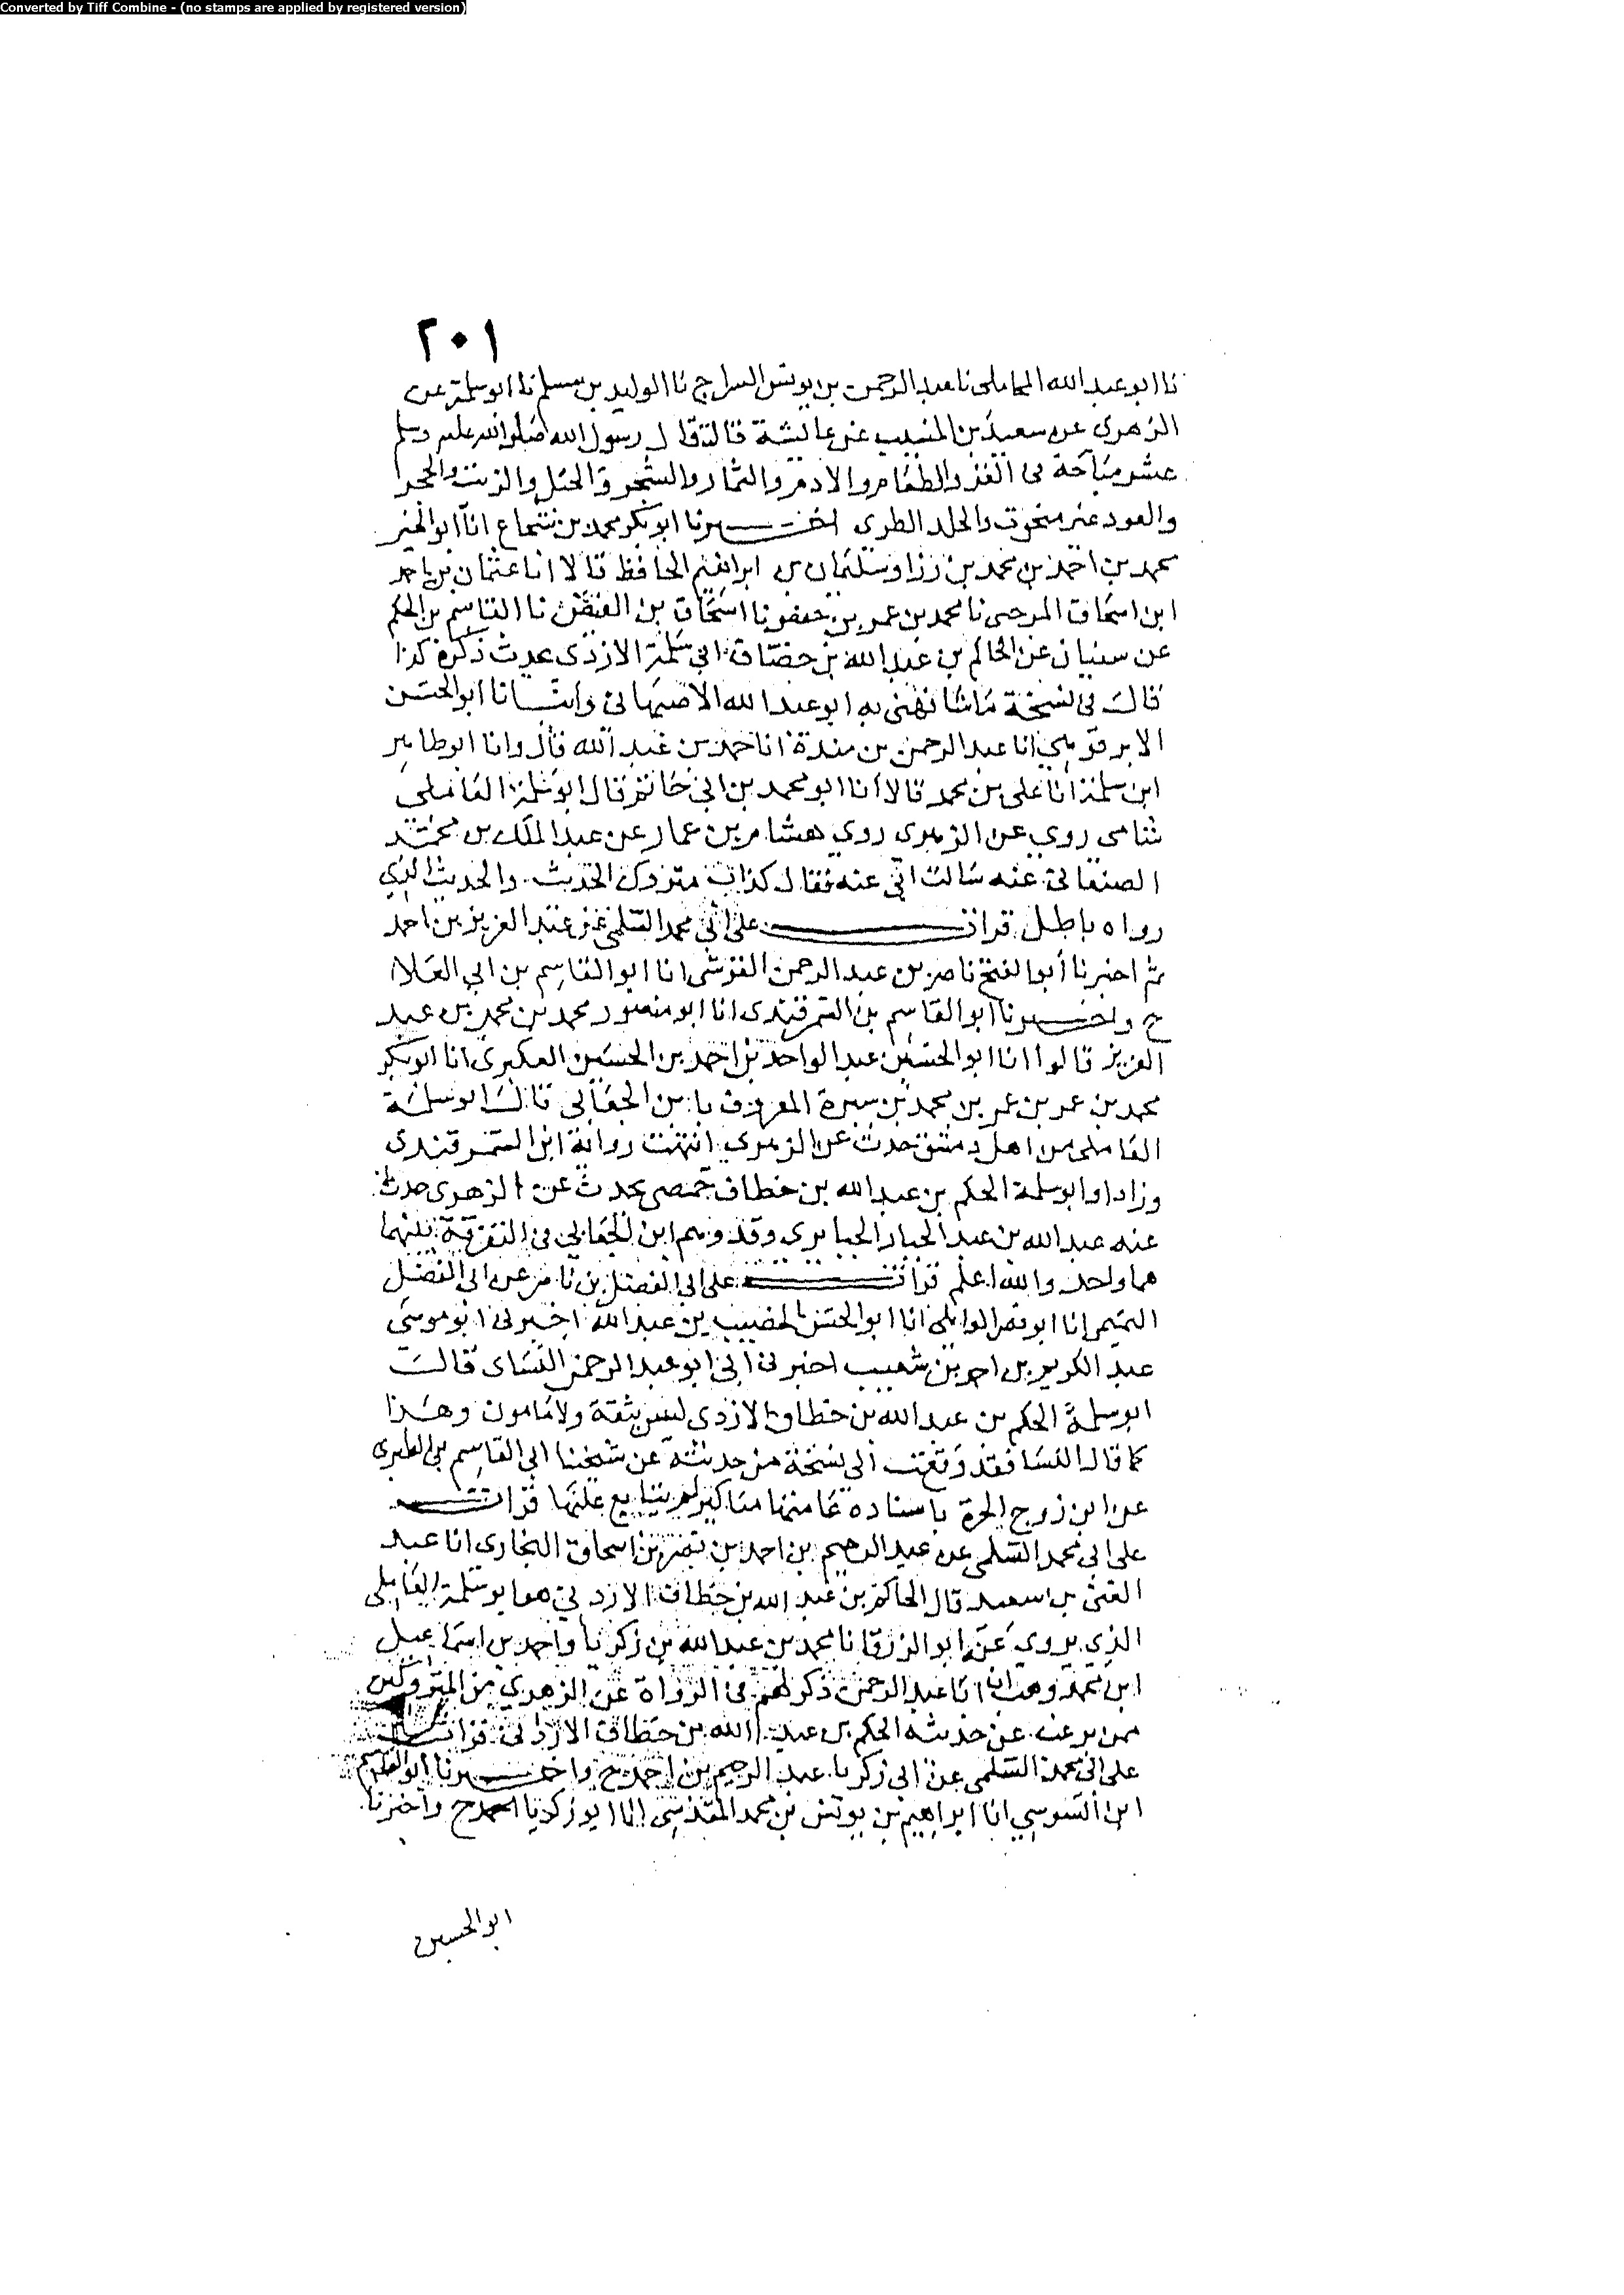 Converted by Tiff Combine - (no stamps are applied by registered version)
٢٠١
نا ابو عبد الله المحاملي نا عبد الرحمن بن يونس السراج نا الوليد بن مسلم نا ابو سلمة عن
الزهرى عن سعيد بن المسيب عن عائشة قالت قال رسول الله صلى الله عليه وسلم
عشر مباحة فى الغزو الطعام والادم والثمار والشجر والخل والزيت والحجر
والعود غير منحوت والجلد الطرى اخبرنا ابو بكر محمد بن شجاع انا ابو الخير
محمد بن احمد بن محمد بن ررا وسليمان بن ابراهيم الحافظ قالا انا عثمان بن احمد
ابن اسحاق البرجى نا محمد بن عمر بن حفص نا اسحاق بن الفيض نا القاسم بن الحكم
عن سفيان عن الحاكم بن عبد الله بن خطاف ابي سلمة الازدى بحديث ذكره كذا
قال فى نسخة ما شافهنى به ابو عبد الله الاصبهانى وانبانا ابو الحسن
الابرقوهي انا عبد الرحمن بن مندة انا حمد بن عبد الله قال وانا ابو طاهر
ابن سلمة انا على بن محمد قالا انا ابو محمد بن ابي حاتم قال ابو سلمة العاملي
شامى روي عن الزهرى روي هشام بن عمار عن عبد الملك بن محمد
الصنعانى عنه سالت ابي عنه فقال كذاب متروك الحديث والحديث الذي
رواه باطل قرات على ابي محمد السلمى عن عبد العزيز بن احمد
ثم اخبرنا أبو الفتح ناصر بن عبد الرحمن القرشى انا ابو القاسم بن ابي العلاا
ح واخبرنا ابو القاسم بن السمرقندى انا ابو منصور محمد بن محمد بن عبد
العزيز قالوا انا ابو الحسين عبد الواحد بن احمد بن الحسين العكبرى انا ابو بكر
محمد بن عمر بن محمد بن سبرة المعروف بابن الجعابى قال ابو سلمة
العاملى من اهل دمشق حدث عن الزهري انتهت رواية ابن السمرقندى
وزادا وابو سلمة الحكم بن عبد الله بن خطاف حمصى يحدث عن الزهرى حدث
عنه عبد الله بن عبد الجبار الخبايرى وقد وهم ابن الجعابي فى التفرقة بينهما
هما واحد والله اعلم قرات على ابى الفضل بن ناصر عن ابى الفضل
التميمي انا ابو نصر الوايلى انا ابو الحسن الخصيب بن عبد الله اخبرنى ابو موسى
عبد الكريم بن احمد بن شعيب اخبرنى ابي ابو عبد الرحمن النساى قال
ابو سلمة الحكم بن عبد الله بن خطاف الازدى ليس بثقة ولا مامون وهذا
كما قال النسا فقد وقعت الى نسخة من حديثه عن شيخنا ابي القاسم بن الطبرى
عن ابن زوج الحرة باسناده عامتها مناكير لم يتابع عليها قرات
على ابى محمد السلمى عن عبد الرحيم بن احمد بن نصر بن اسحاق البخارى انا عبد
الغنى بن سعيد قال الحاكم بن عبد الله بن خطاف الازدي هو ابو سلمة العاملى
الذي يروي عنه ابو الزرقا نا محمد بن عبد الله بن زكريا واحمد بن اسماعيل
ابن محمد وهب انا عبد الرحمن ذكر لهم فى الرواة عن الزهري من المتروكين
ممن يرغب عن حديثه الحكم بن عبد الله بن خطاف الازدى قرات
على ابى محمد السلمى عن ابى زكريا عبد الرحيم بن احمد ح واخبرنا ابو القاسم
ابن السوسي انا ابراهيم بن يونس بن محمد المقدسى انا ابو زكريا احمد ح واخبرنا
ابو الحسين